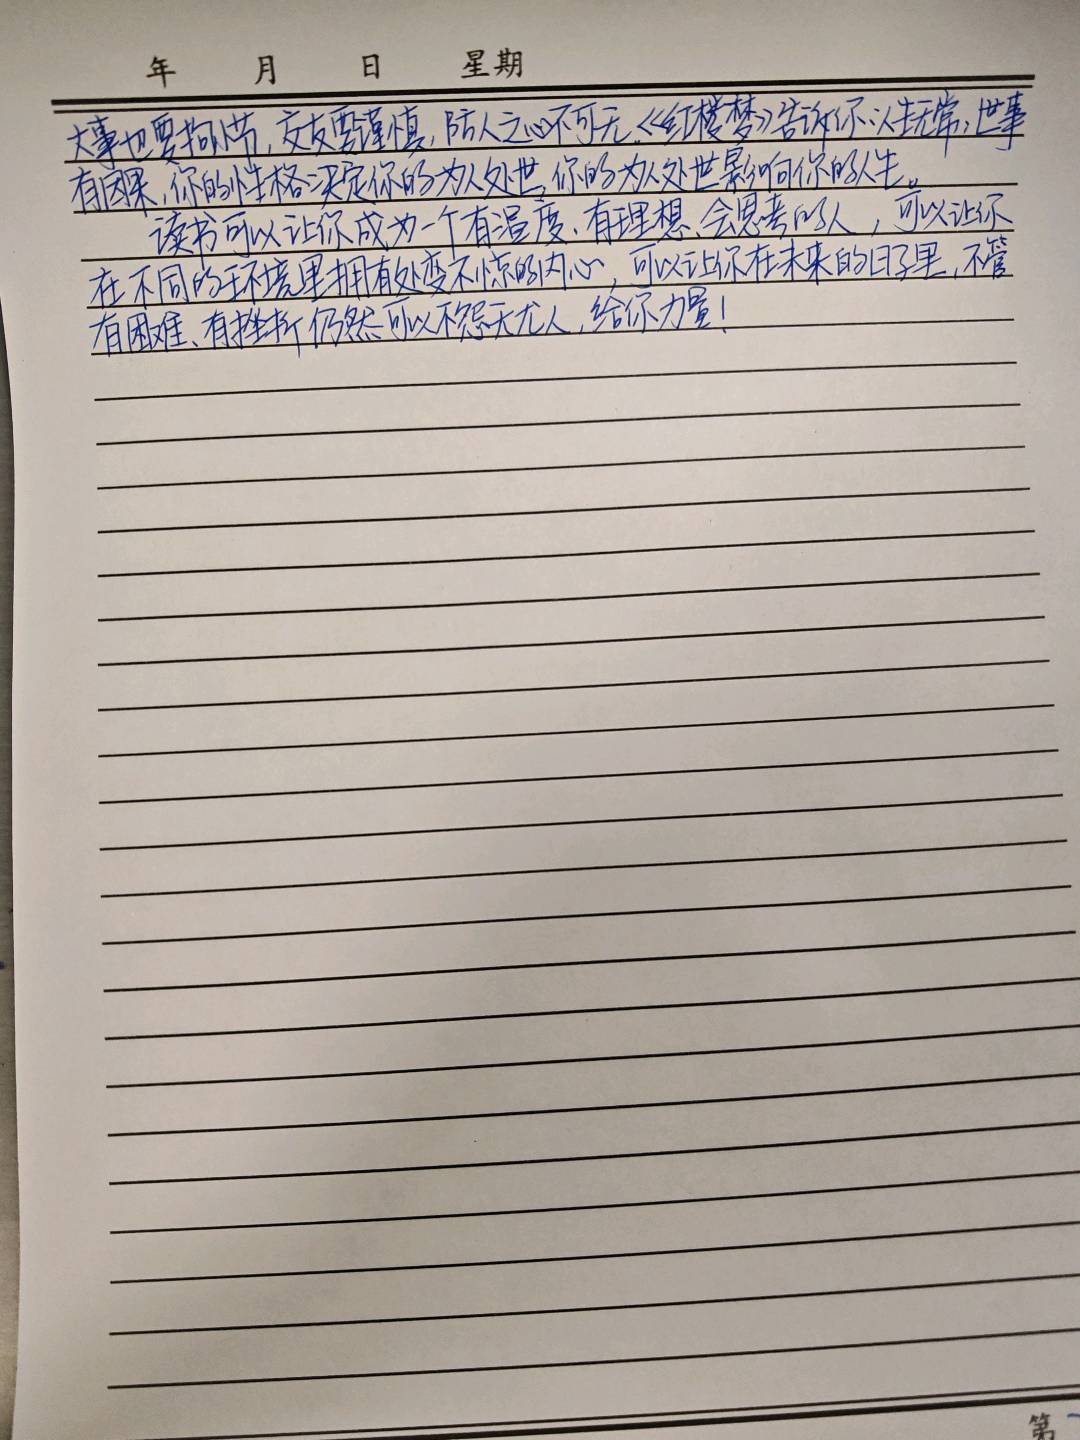 年 月 日 星期
大事也要拘小节，交友要谨慎，防人之心不可无。《红楼梦》告诉你:人生无常，世事
有因果，你的性格决定你的为人处世，你的为人处世影响你的人生。
读书可以让你成为一个有温度、有理想、会思考的人，可以让你
在不同的环境里拥有处变不惊的内心，可以让你在未来的日子里，不管
有困难、有挫折仍然可以不怨天尤人，给你力量！
第